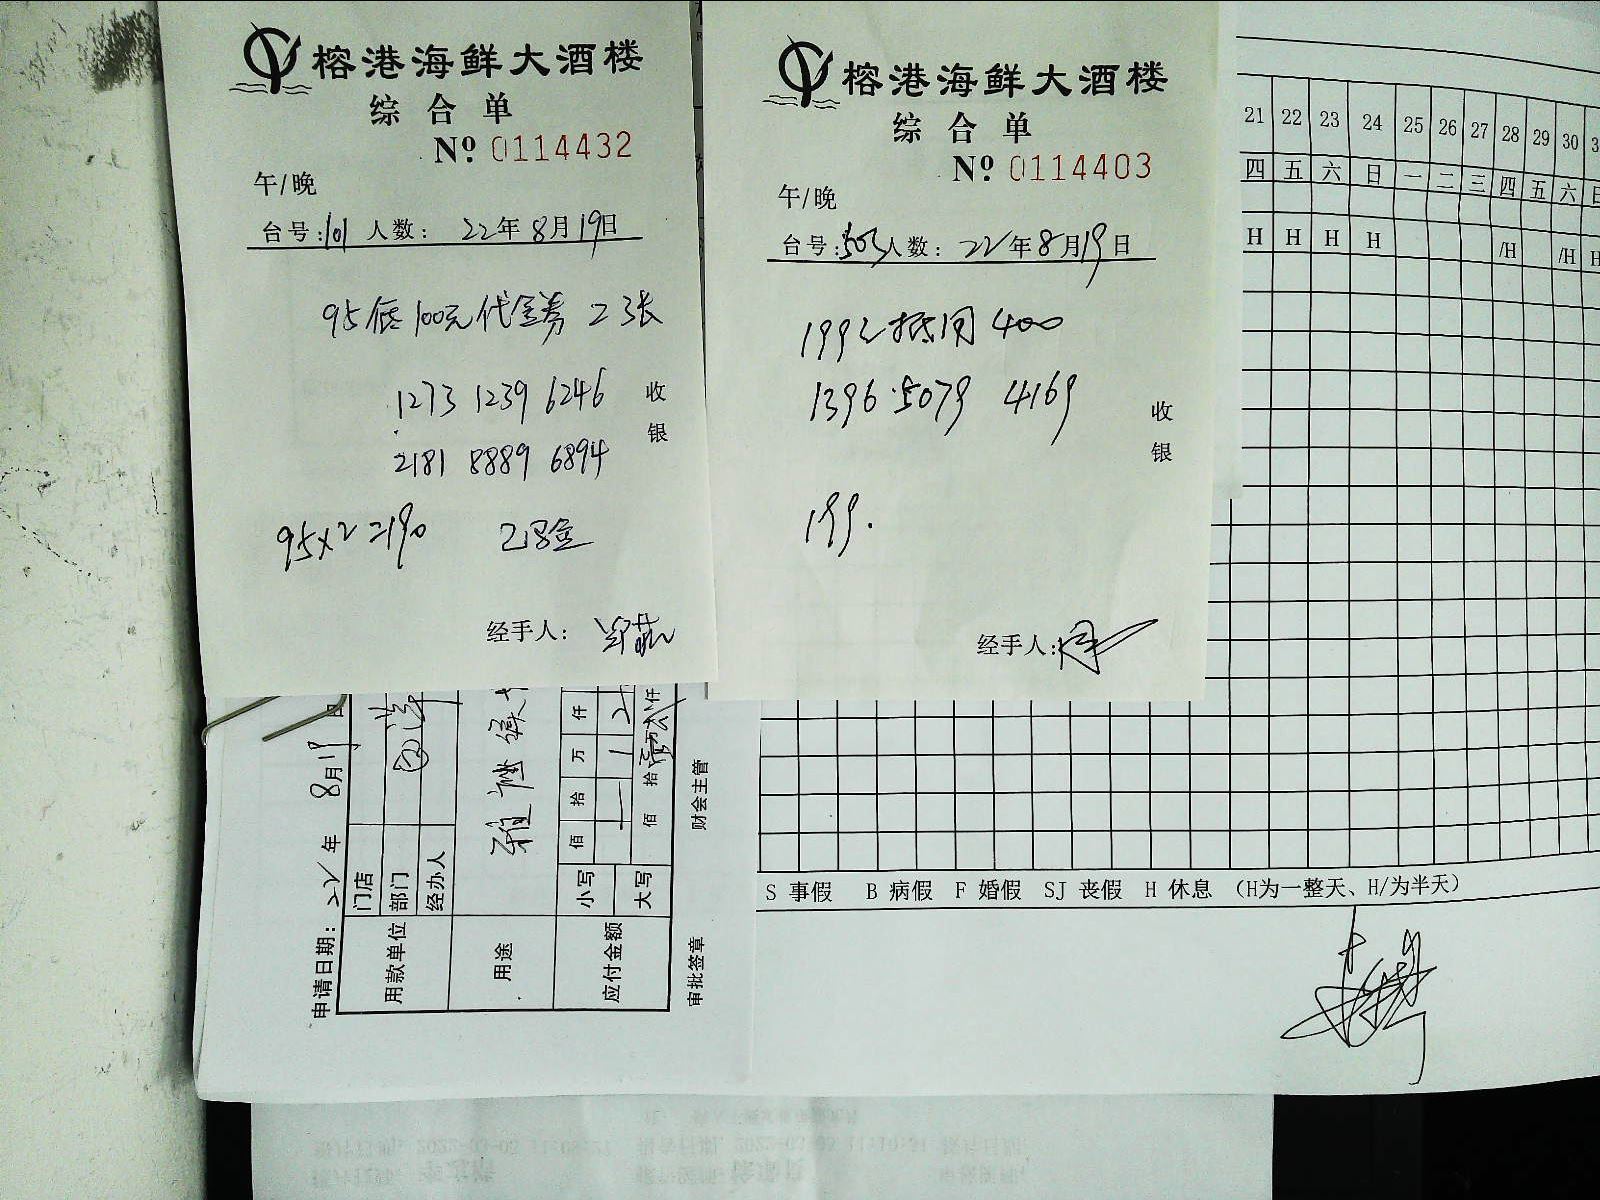 榕港海鲜大酒楼
综合单
Nº 0114432
午/晚
台号:101 人数: 22年8月19日
95抵100元代金券 2张
1273 1239 6246
2181 8889 6894
收银
95×2=190
经手人:
榕港海鲜大酒楼
综合单
Nº 0114403
午/晚
台号:503 人数: 22年8月19日
199元抵用400
1396 5079 4169
收银
199.
经手人:
21 22 23 24 25 26 27 28 29 30
四 五 六 日 一 二 三 四 五 六 日
H H H H /H /H H
S 事假 B 病假 F 婚假 SJ 丧假 H 休息 (H为一整天、H/为半天)
申请日期: 22年8月19日
用款单位 门店
部门
经办人
用途
应付金额 小写 佰 拾 万 仟
大写 佰 拾 万 仟
审批签章 财会主管